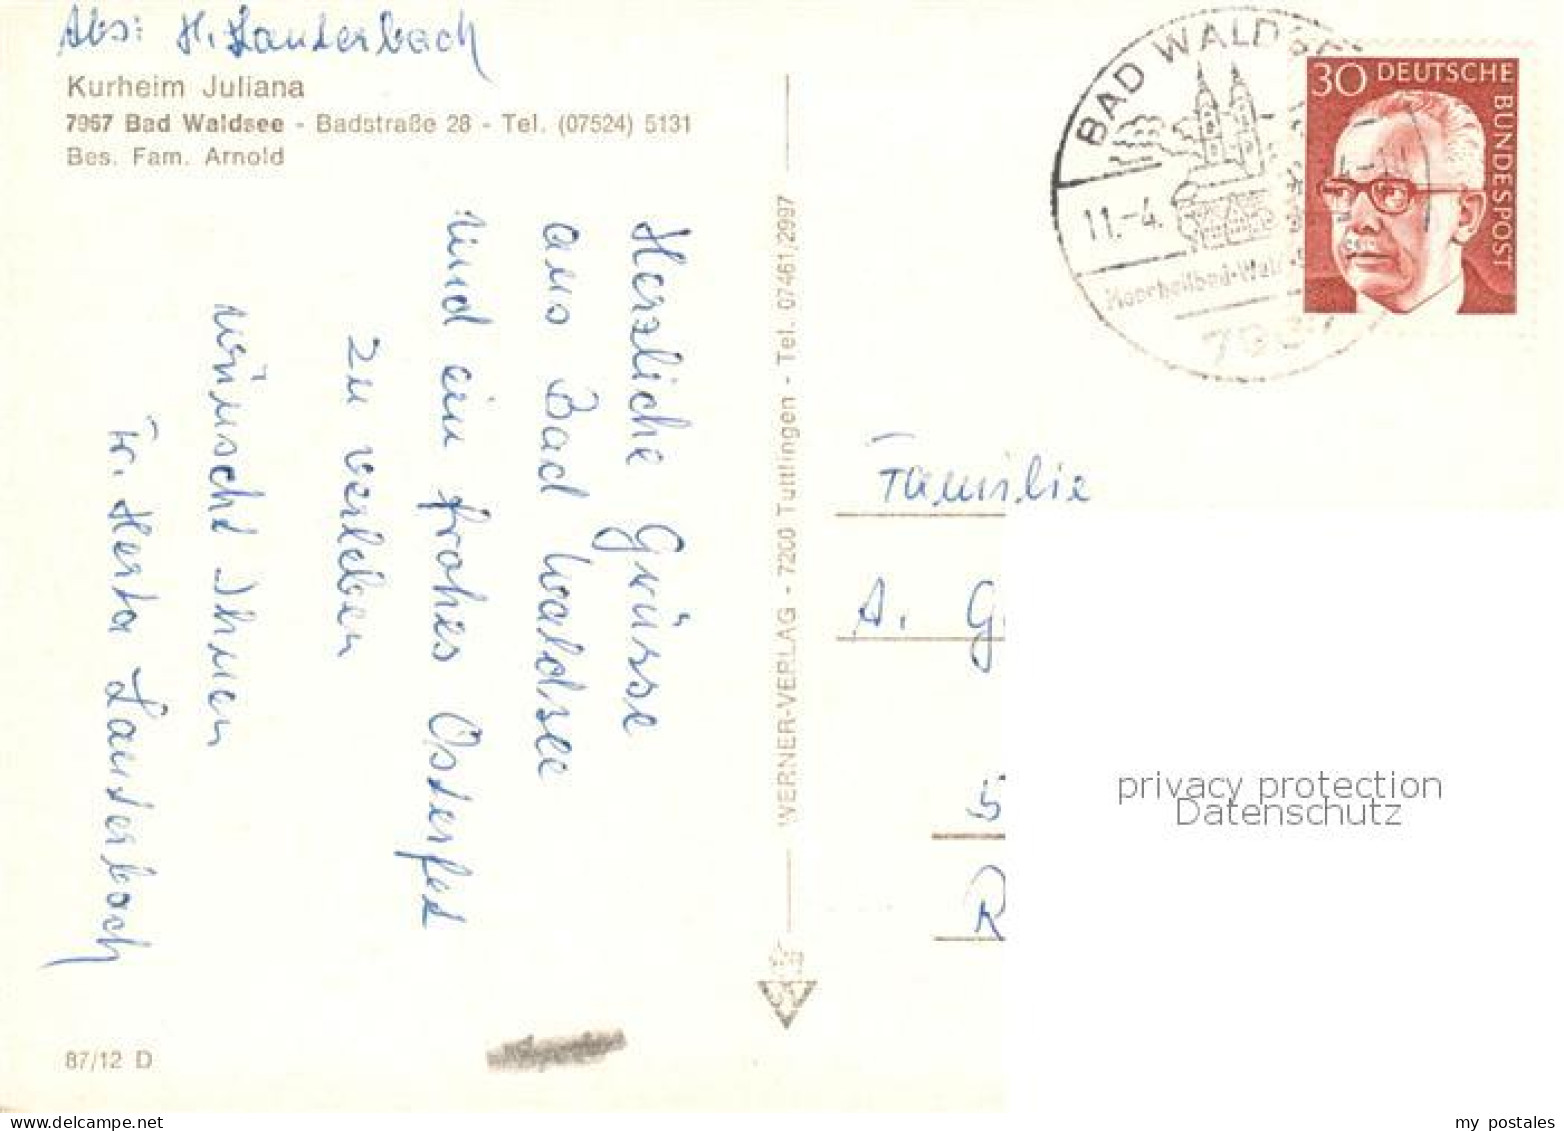 Abs: H. Lauterbach
Kurheim Juliana
7967 Bad Waldsee - Badstraße 28 - Tel. (07524) 5131
Bes. Fam. Arnold
Herzliche Grüsse
aus Bad Waldsee
und ein frohes Osterfest
zu verleben
wünscht Ihnen
Fr. Herta Lauterbach
87/12 D
WERNER-VERLAG - 7200 Tuttlingen - Tel. 07461/2997
BAD WALDSEE
11.-4.
Moorheilbad
30 DEUTSCHE
BUNDESPOST
Familie
A. G
5
R
privacy protection
Datenschutz
www.delcampe.net
my postales